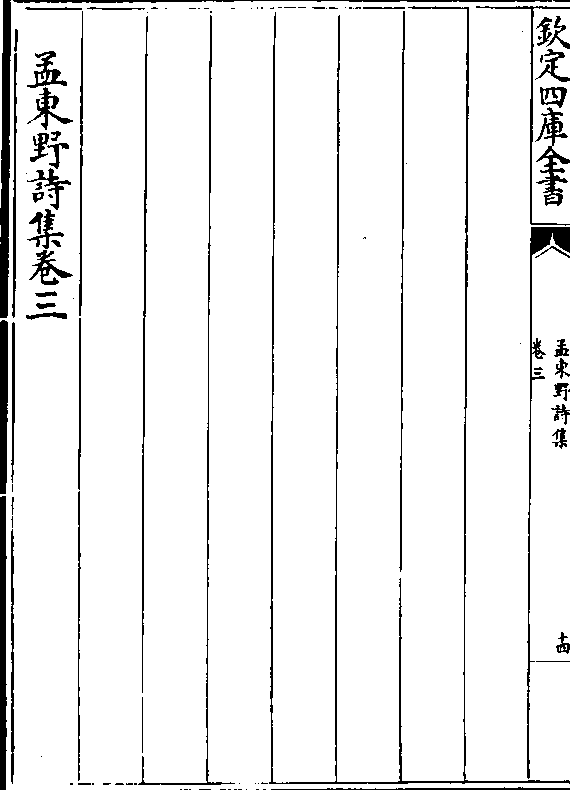 欽定四庫全書
孟東野詩集
卷三
十四
孟東野詩集卷三